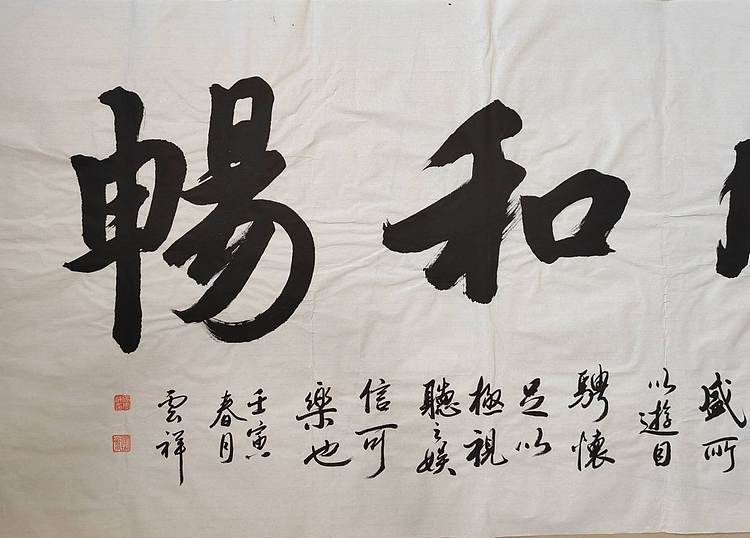 和暢
盛所
以遊目
騁懷
足以
極視
聽之娛
信可
樂也
壬寅
春月
雲祥